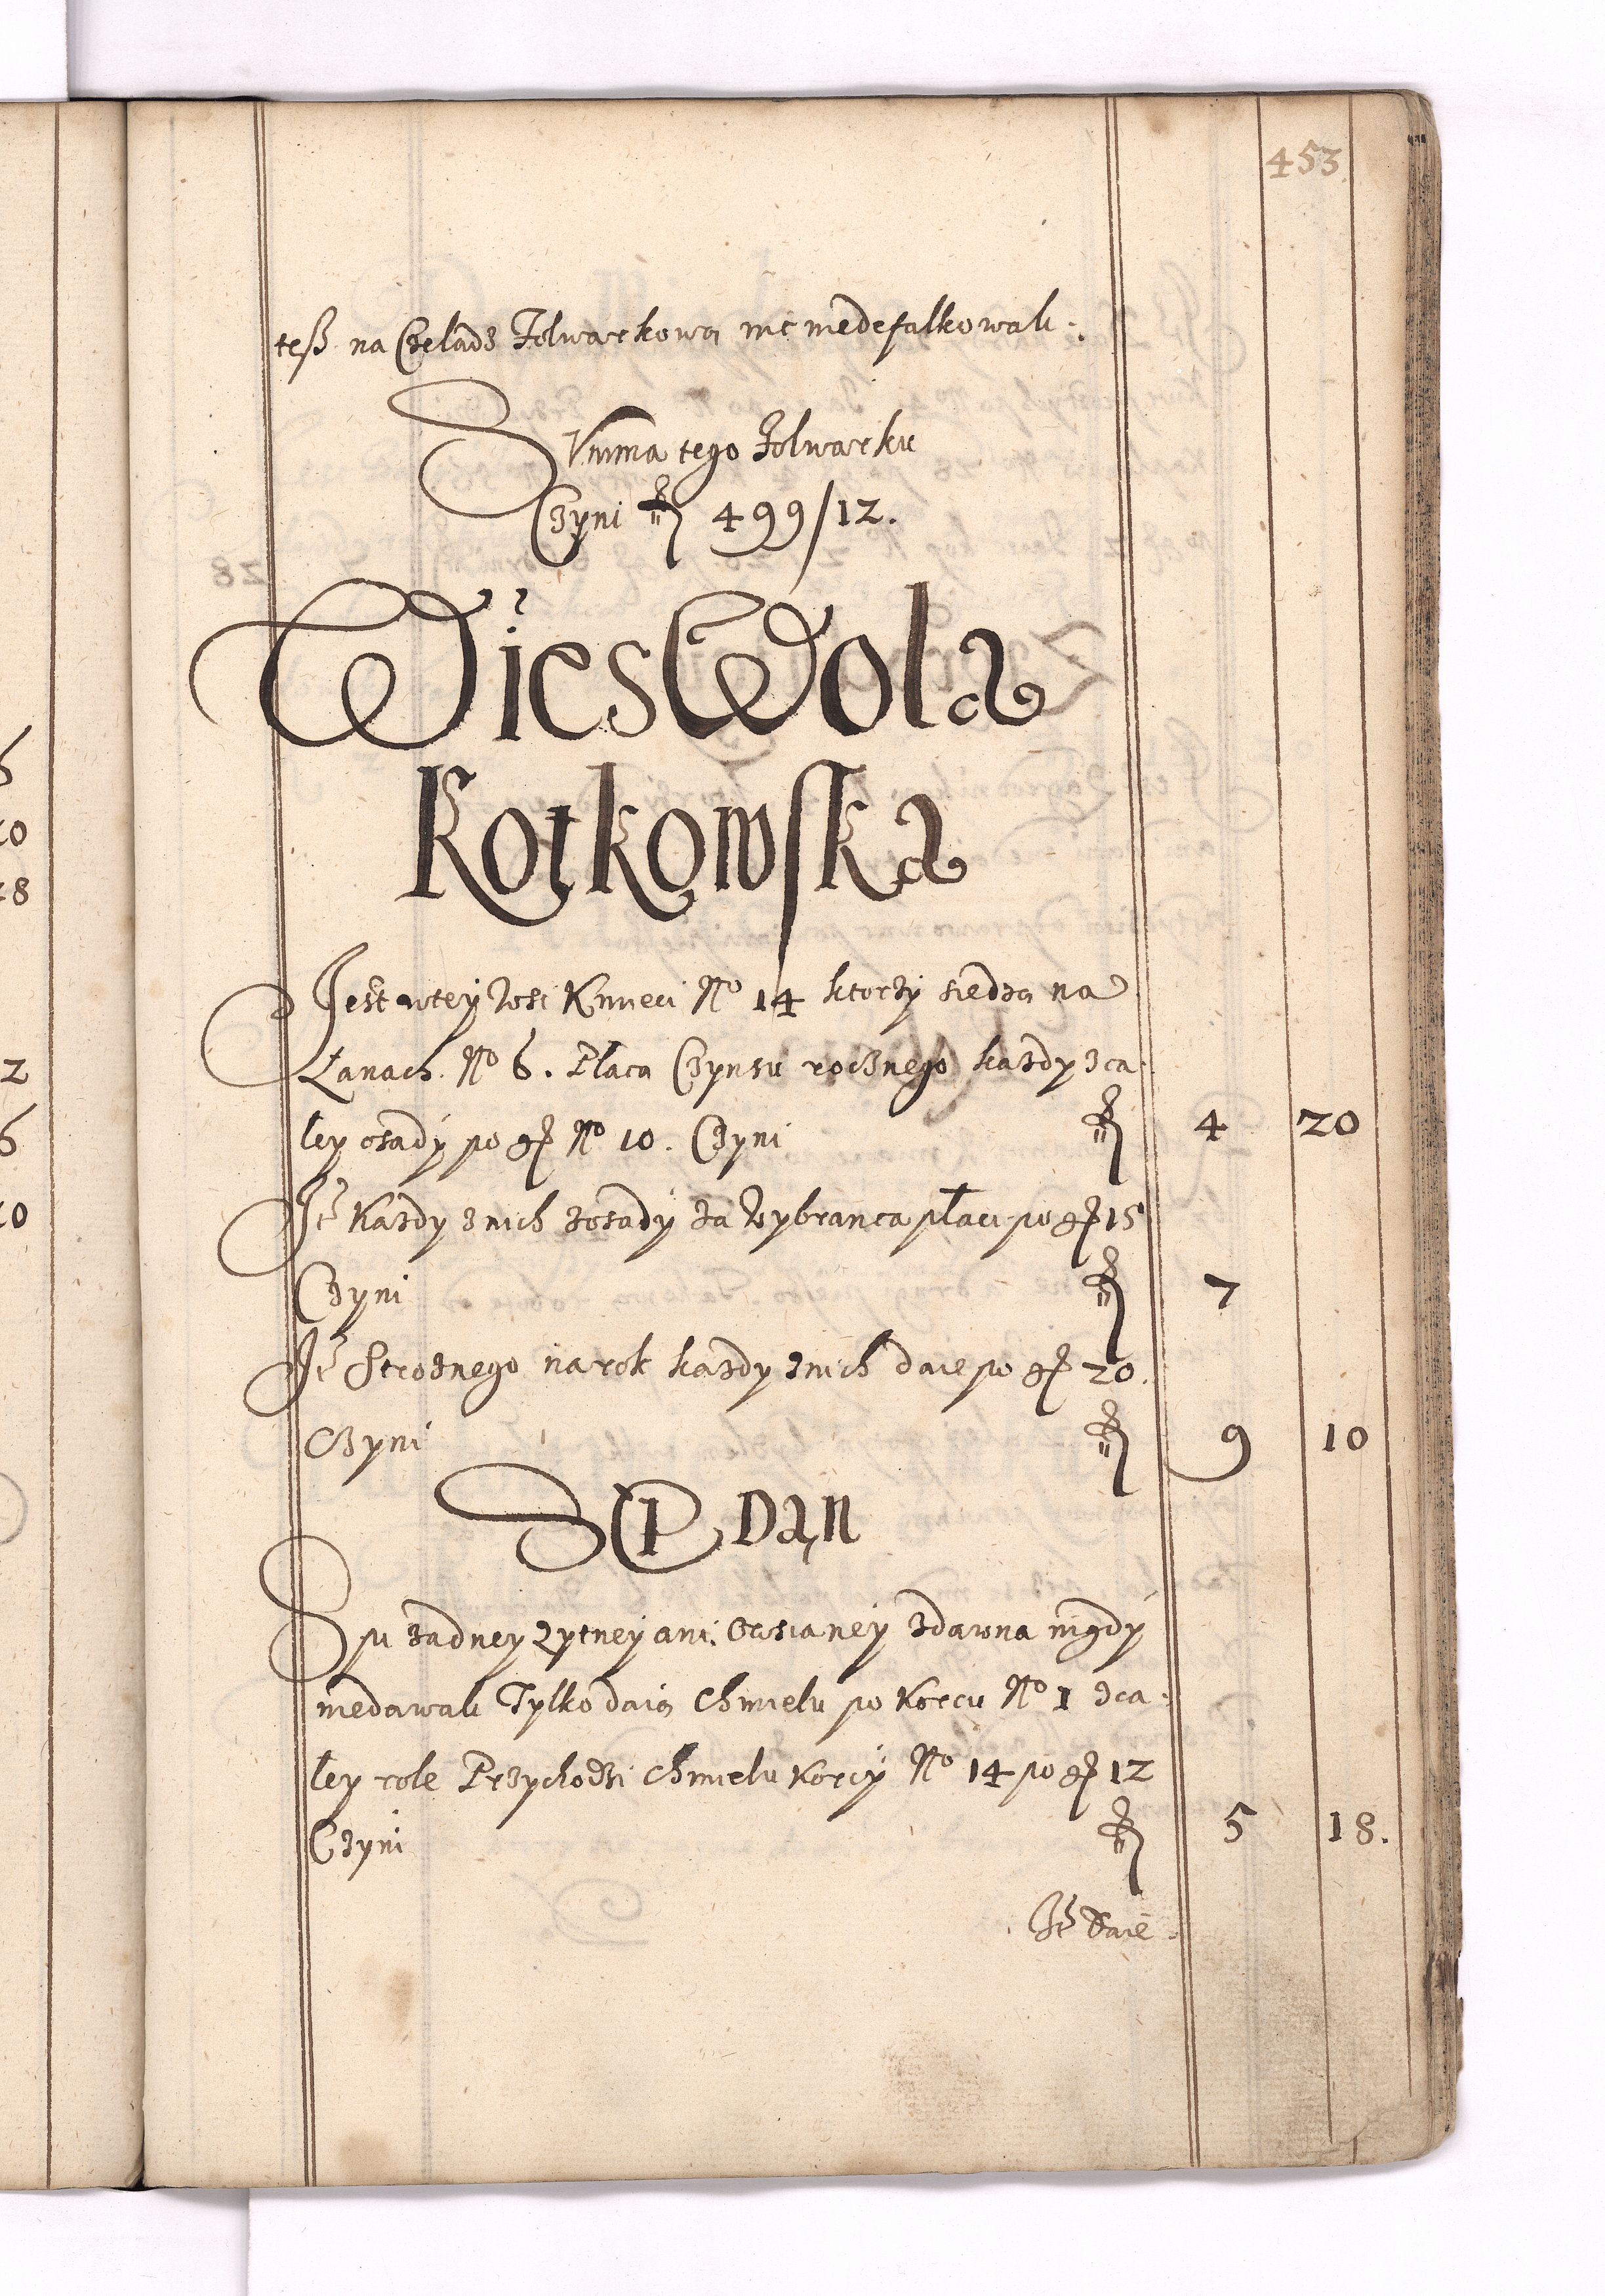 453
teß na Czeladz Folwarkową nic niedefalkowali.
Summa tego Folwarku
Czyni fl 499/12.
Wies Wola
Kotkowska
Jest wtey Wsi Kmieci No 14 ktorzy siedzą na
Łanach No 6. Płacą Czynsu rocznego kazdy zca
ley osady po gr No 10. Czyni fl 4 20
It Kazdy znich zosady za Wybranca płaci po gr 15
Czyni fl 7
It Stroznego na rok kazdy znich daie po gr 20.
Czyni fl 9 10
SEP Dan
Sepu zadney Zytney ani Owsianey zdawna nigdy
niedawali Tylko daią Chmielu po Korcu No 1 zca
ley role Przychodzi Chmielu Korcy No 14 po gr 12
Czyni fl 5 18.
It Daie